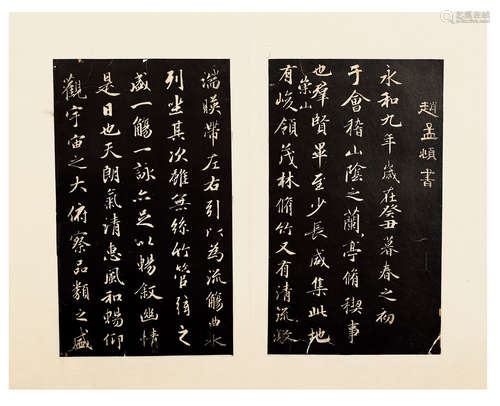 趙孟頫書
永和九年歲在癸丑暮春之初
于會稽山陰之蘭亭脩稧事
也群賢畢至少長咸集此地
有崇山峻領茂林脩竹又有清流激
湍暎帶左右引以為流觴曲水
列坐其次雖無絲竹管弦之
盛一觴一詠亦足以暢敘幽情
是日也天朗氣清惠風和暢仰
觀宇宙之大俯察品類之盛